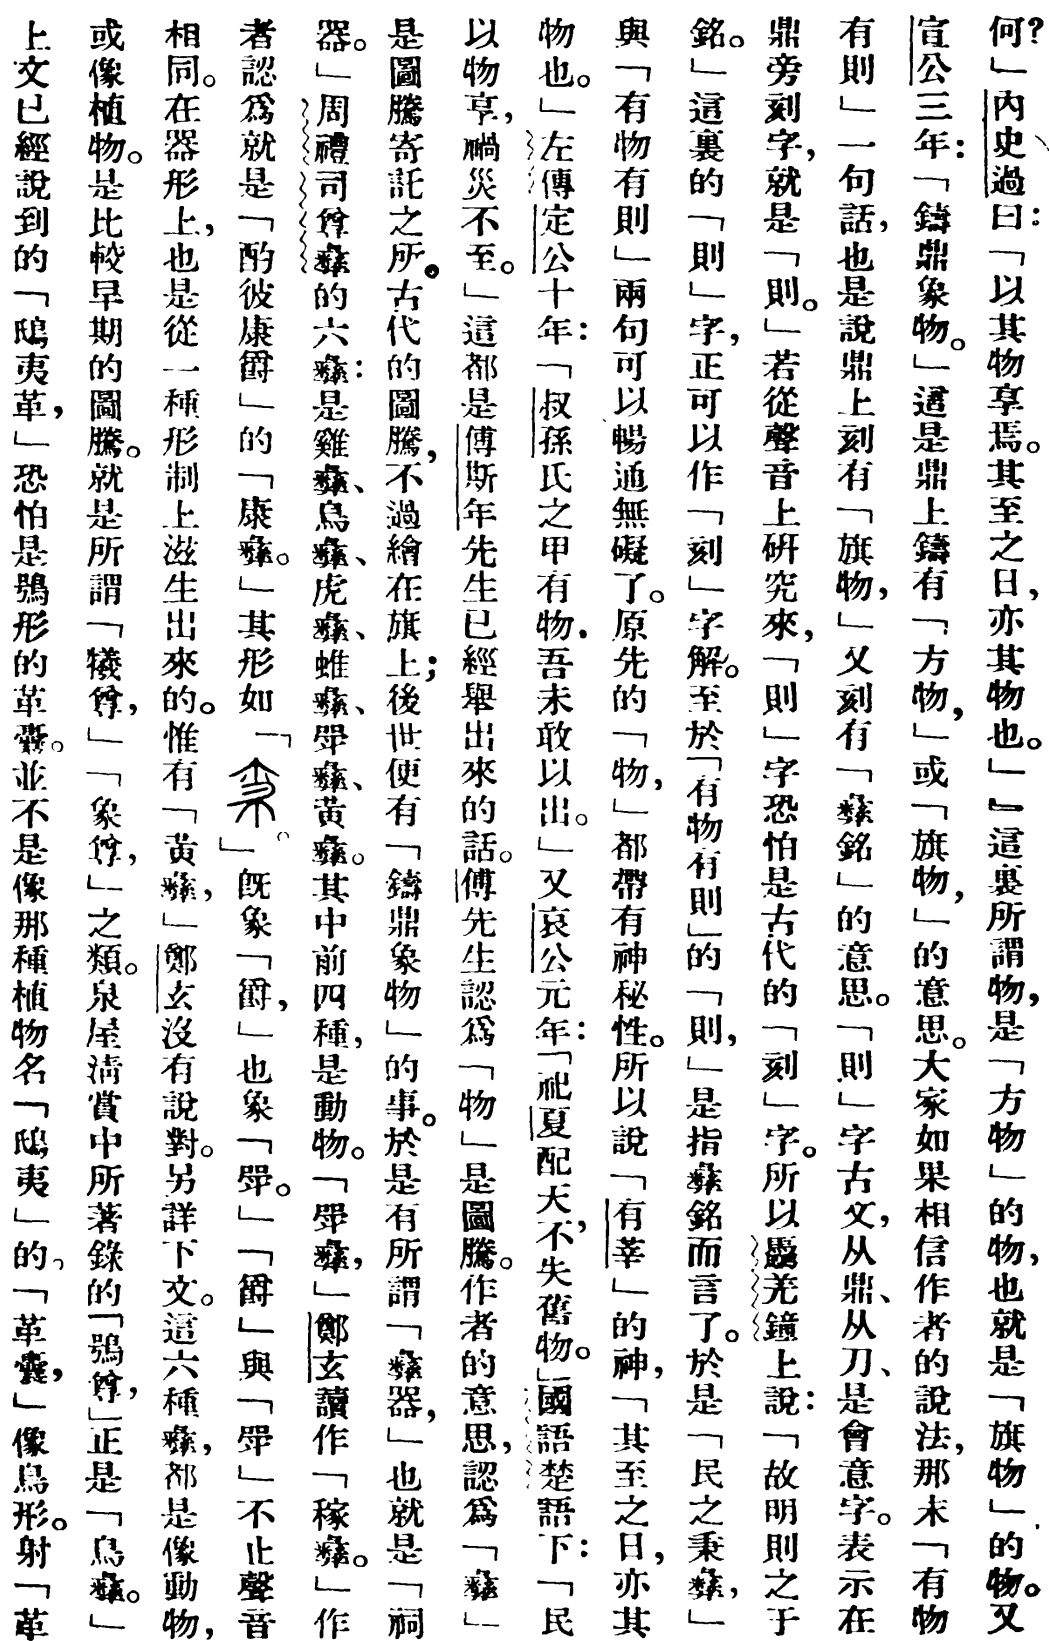 何？」內史過曰：「以其物享焉。其至之日，亦其物也。」』這裏所謂物，是「方物」的物，也就是「旗物」的物。又
宣公三年：「鑄鼎象物。」這是鼎上鑄有「方物，」或「旗物，」的意思。大家如果相信作者的說法，那末「有物
有則」一句話，也是說鼎上刻有「旗物，」又刻有「彝銘」的意思。「則」字古文，从鼎、从刀、是會意字。表示在
鼎旁刻字，就是「則。」若從聲音上研究來，「則」字恐怕是古代的「刻」字。所以𠫑羌鐘上說：「故明則之于
銘。」這裏的「則」字，正可以作「刻」字解。至於「有物有則」的「則，」是指彝銘而言了。於是「民之秉彝，」
與「有物有則」兩句可以暢通無礙了。原先的「物，」都帶有神秘性。所以說「有莘」的神，「其至之日，亦其
物也。」左傳定公十年：「叔孫氏之甲有物，吾未敢以出。」又哀公元年：「祀夏配天，不失舊物。」國語楚語下：「民
以物享，禍災不至。」這都是傅斯年先生已經舉出來的話。傅先生認爲「物」是圖騰。作者的意思，認爲「彝」
是圖騰寄託之所。古代的圖騰，不過繪在旗上；後世便有「鑄鼎象物」的事。於是有所謂「彝器，」也就是「祠
器。」周禮司尊彝的六彝：是雞彝、鳥彝、虎彝、蜼彝、斝彝、黃彝。其中前四種，是動物。「斝彝，」鄭玄讀作「稼彝。」作
者認爲就是「酌彼康爵」的「康彝。」其形如「」。既象「爵，」也象「斝。」「爵」與「斝」不止聲音
相同。在器形上，也是從一種形制上滋生出來的。惟有「黃彝，」鄭玄沒有說對。另詳下文。這六種彝，都是像動物，
或像植物。是比較早期的圖騰。就是所謂「犧尊，」「象尊，」之類。泉屋清賞中所著錄的「鴞尊，」正是「鳥彝。」
上文已經說到的「鴟夷革，」恐怕是鴞形的革囊。並不是像那種植物名「鴟夷」的。「革囊，」像鳥形。射「革